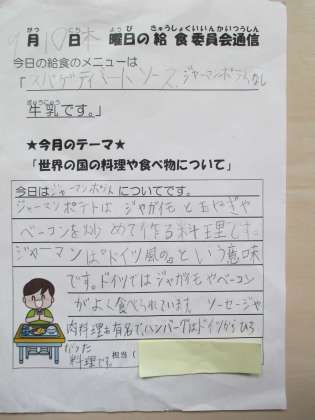 9月10日木曜日の給食委員会通信
がつ にち ようび きゅうしょくいいんかいつうしん
今日の給食のメニューは
「スパゲティミートソース、ジャーマンポテト、なし
ぎゅうにゅう
牛乳です。」
★今月のテーマ★
「世界の国の料理や食べ物について」
今日はジャーマンポテトについてです。
ジャーマンポテトは ジャガイモと玉ねぎや
ベーコンを炒めて作る料理です。
ジャーマンは"ドイツ風の"という意味
です。ドイツではジャガイモやベーコン
がよく食べられています。ソーセージや
肉料理も有名で、ハンバーグはドイツからひろ
がった
料理です。
担当（